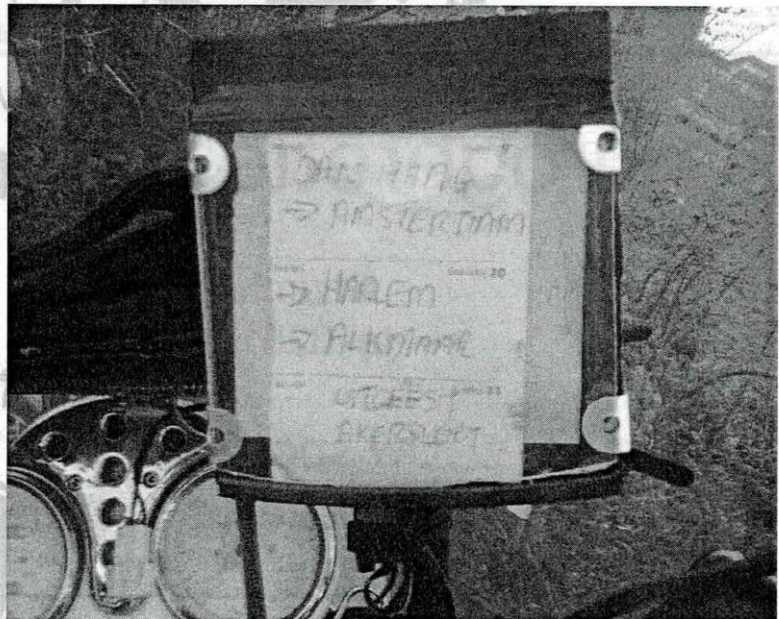 DAN HAAG
→ AMSTERDAM
20
→ HARLEM
→ ALKMAAR
UITGEEST
AKERSLOOT